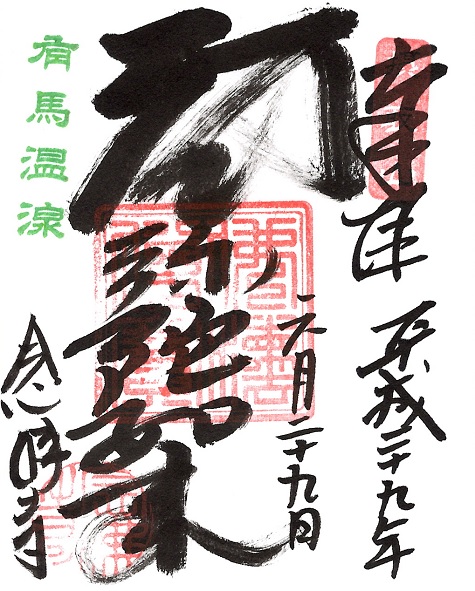 奉拝
平成二十九年
六月二十九日
阿弥陀如来
有馬温泉
念佛寺